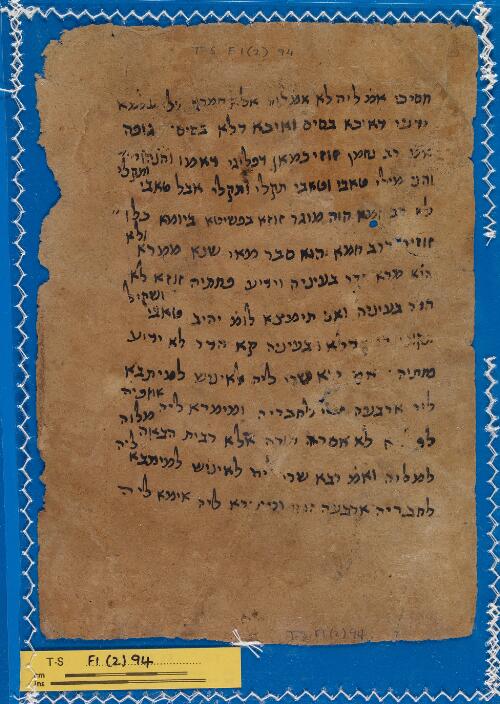 T-S F1(2) 94
חסיכי אמ׳ ליה לא אמ׳ ליה אלא
ידעי דאיכא בסיס ואיכא דלא בסיס גופה
אמ׳ רב נחמן זוזי כמאן דפליגי דאמו
ותקלי
והני מילי טאבי וטאבי תקלי ותקלי אבל טאבי
לא רב חמא הוה מוגר זוזא בפשיטא ביומא כלו
ולא
זוזי דרב חמא הוא סבר מאי שנא ממרא
הוא מרא הדר בעיניה וידיע פחתיה זוזא לא
ושקיל
הדר בעיניה ואם תימצא לומ׳ יהיב טאבי
בעיניה קא הדר לא ידיע
פחתיה אמ׳ רבא שרי ליה לאיניש למיתבא
ליה ארבעה זוזי לחבריה ומימרא ליה אוזפיה
מלוה
לא אסרה תורה אלא רבית הבאה
ליה
למלוה ואמ׳ רבא שרי ליה לאיניש למיתבא
לחבריה ארבעה זוזי ומימרא ליה אימא ליה
T-S F1(2) 94
T-S F1.(2).94
cm
ins